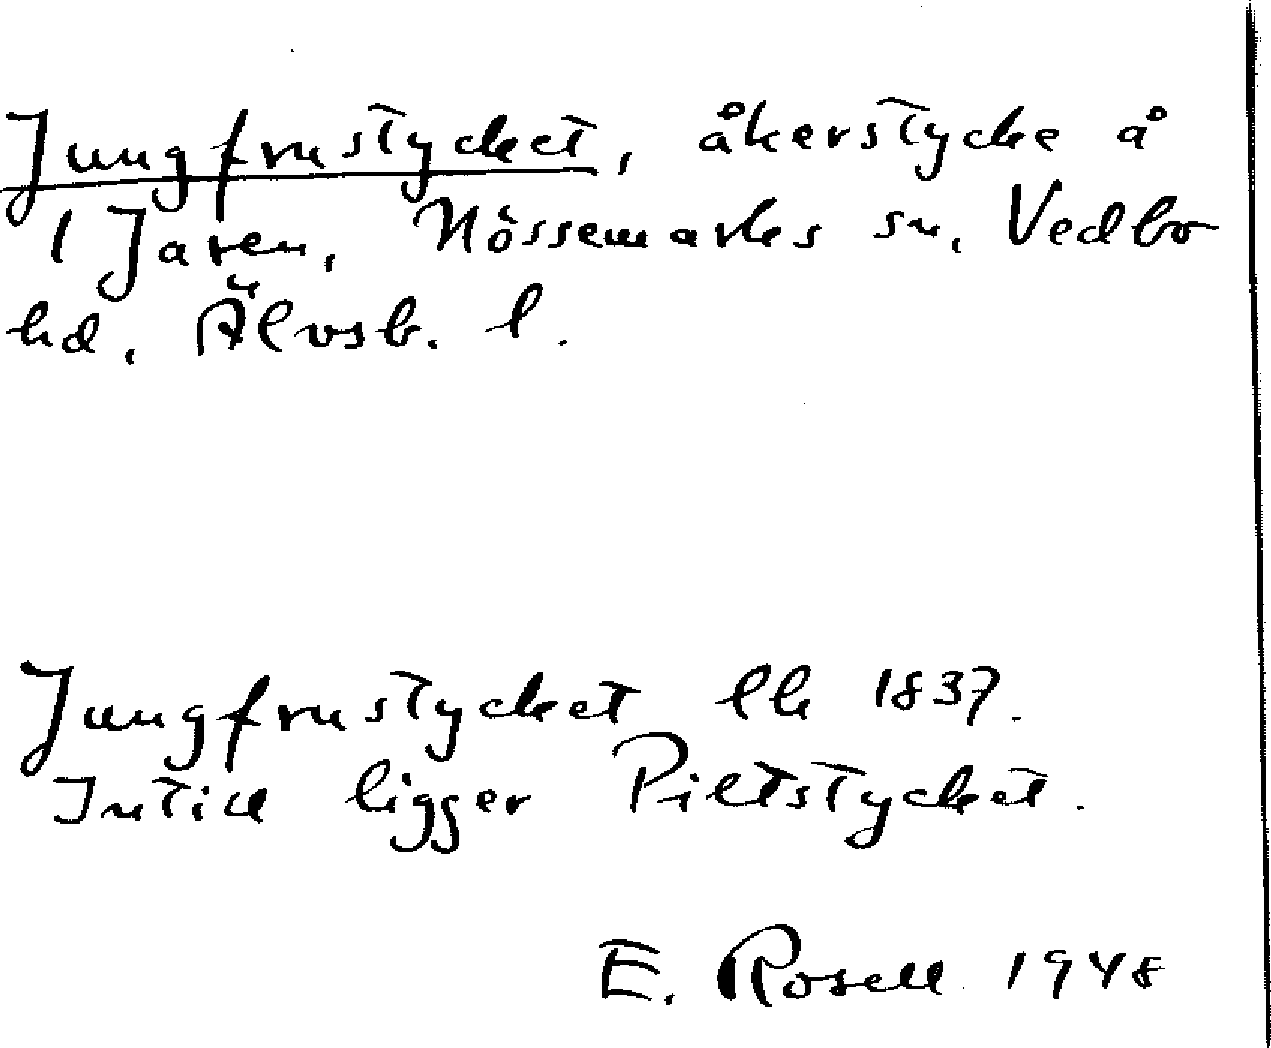 Jungfrustycket, åkerstycke å
1 Jaren, Nössemarks sn, Vedbo
hd, Älvsb. l.
Jungfrustycket lk 1837.
Intill ligger Piltstycket.
E. Rosell 1948